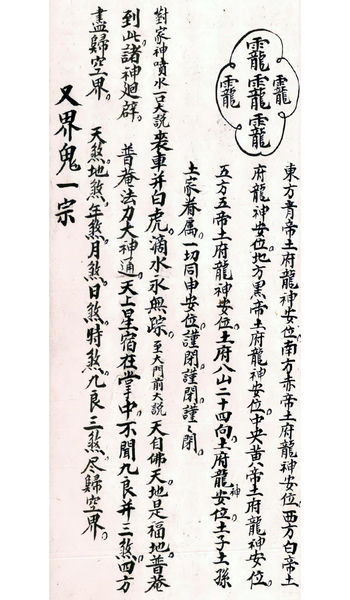 靇
靇靇靇
靇
東方青帝土府龍神安位。南方赤帝土府龍神安位。西方白帝土
府龍神安位。地方黑帝土府龍神安位。中央黄帝土府龍神安位。
五方五帝土府龍神安位。土府八山二十四向土府龍神安位。土子土孫
土家眷属。一切同申安位。謹閉謹閉謹々閉。
對家神噴水一口大説 喪車并白虎。滴水永無踪。至大門前大説 天自佛天。地是福地。普菴
到此。諸神廻避。普菴法力大神通。天上星宿在掌中。不聞九良并三煞。四方
盡歸空界。天煞。地煞。年煞。月煞。日煞。時煞。九良三煞。尽歸空界。
又界鬼一宗